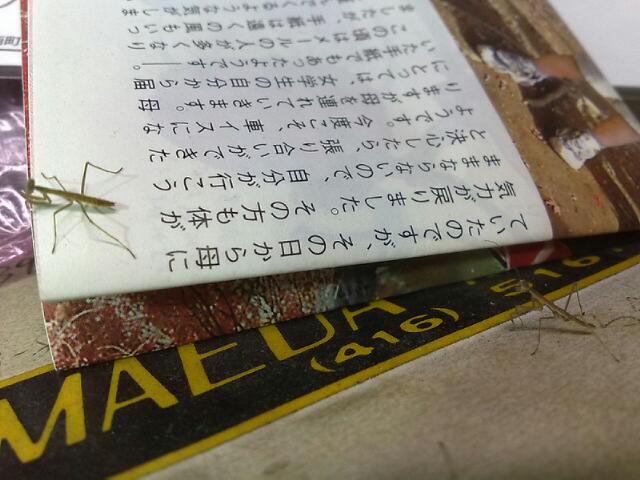 ていたのですが、その日から母に
気力が戻りました。その方も体が
ままならないので、自分が行こう
と決心したら、張り合いができた
ようです。今度こそ、車イスにな
りますが母を連れていきます。母
にとっては、女学生の自分から届
いた手紙でもあったようです。――
この頃はメールの人が多くなり
ましたが、手紙は遠くの風もいっ
んでくるような気がしま
MAEDA
(416)
516
町